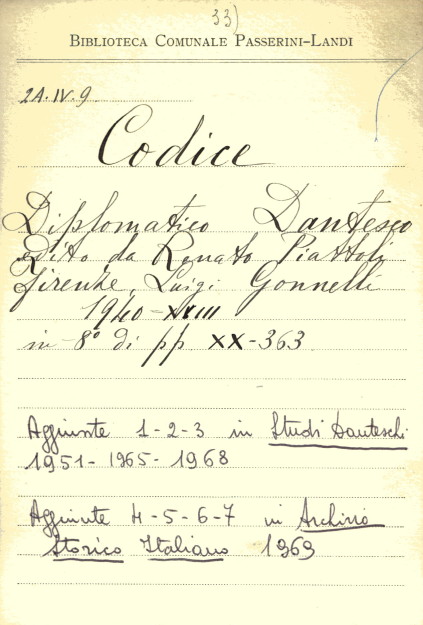 33)
BIBLIOTECA COMUNALE PASSERINI-LANDI
2A.IV.9.
Codice
Diplomatico Dantesco
edito da Renato Piattoli
Firenze, Luigi Gonnelli
1940-XVIII
in 8° di pp XX-363
Aggiunte 1-2-3 in Studi Danteschi
1951-1965-1968
Aggiunte 4-5-6-7 in Archivio
Storico Italiano 1969